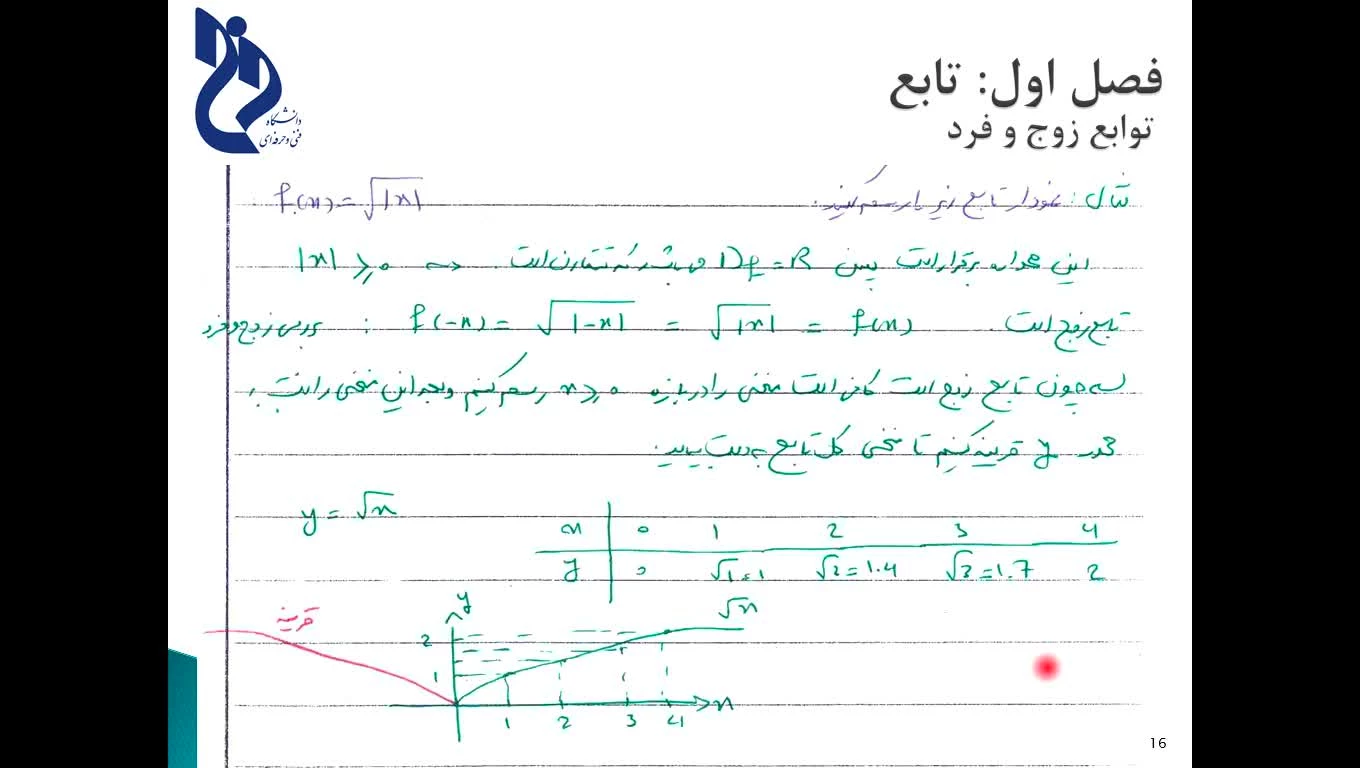 فصل اول: تابع
توابع زوج و فرد
دانشگاه
فنی و حرفه‌ای
مثال: نمودار تابع زیر را رسم کنید. f(x) = √|x|
|x| ≥ 0 ⇒ این همواره برقرار است پس D_f = R می باشد که متقارن است
بررسی زوج و فرد : f(-x) = √|-x| = √|x| = f(x) تابع زوج است
پس چون تابع زوج است کافی است منحنی را در بازه x ≥ 0 رسم کنیم و بعد این منحنی را نسبت به
محور y قرینه کنیم تا منحنی کل تابع به دست بیاید.
y = √x
x 0 1 2 3 4
y 0 √1=1 √2=1.4 √3=1.7 2
قرینه y √x
2
1
x
1 2 3 4
16